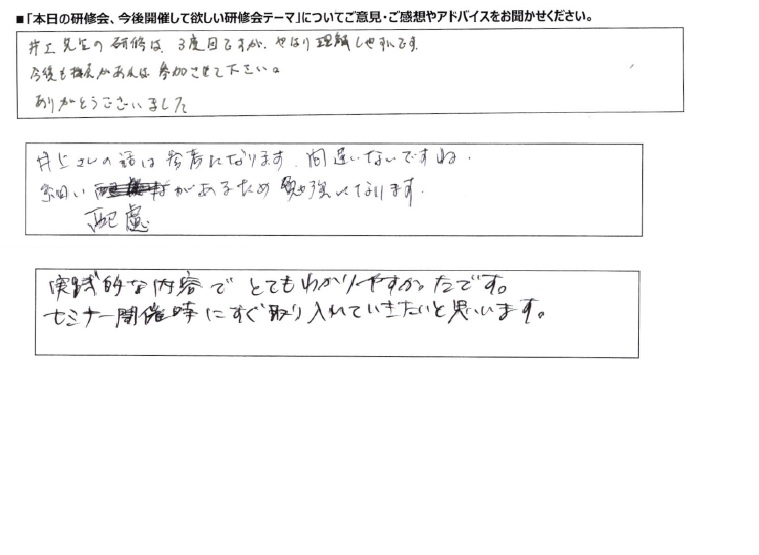 ■「本日の研修会、今後開催して欲しい研修会テーマ」についてご意見・ご感想やアドバイスをお聞かせください。
井上先生の研修は、3度目ですが、やはり理解しやすいです。
今後も機会があれば参加させて下さい。
ありがとうございました
井上さんの話は参考になります。間違いないですね。
細い があるため勉強になります。
配慮
実践的な内容でとてもわかりやすかったです。
セミナー開催時にすぐ取り入れていきたいと思います。